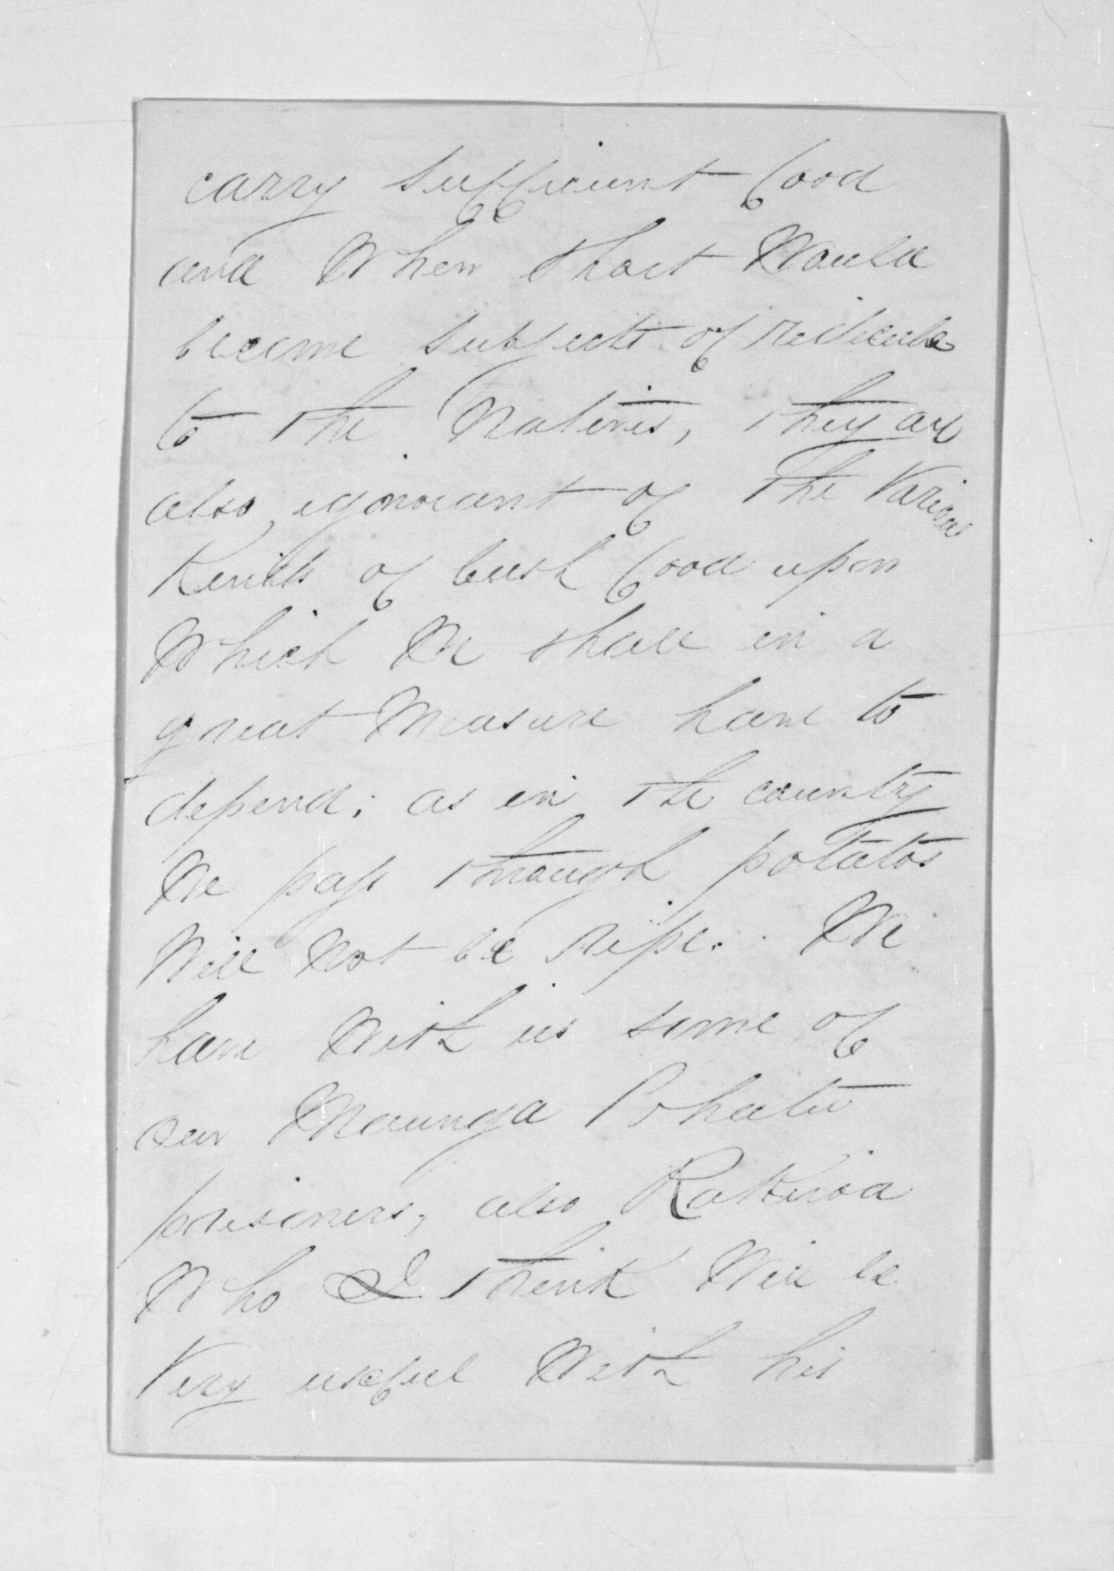 carry sufficient food
and when short would
become subjects of ridicule
to the Natives, they are
also ignorant of the various
kinds of bush food upon
which we shall in a
great measure have to
depend; as in the country
we pass through potatos
will not be ripe. We
have with us some of
our Maunga Pohatu
prisoners, also Rakiroa
who I think will be
very useful with his